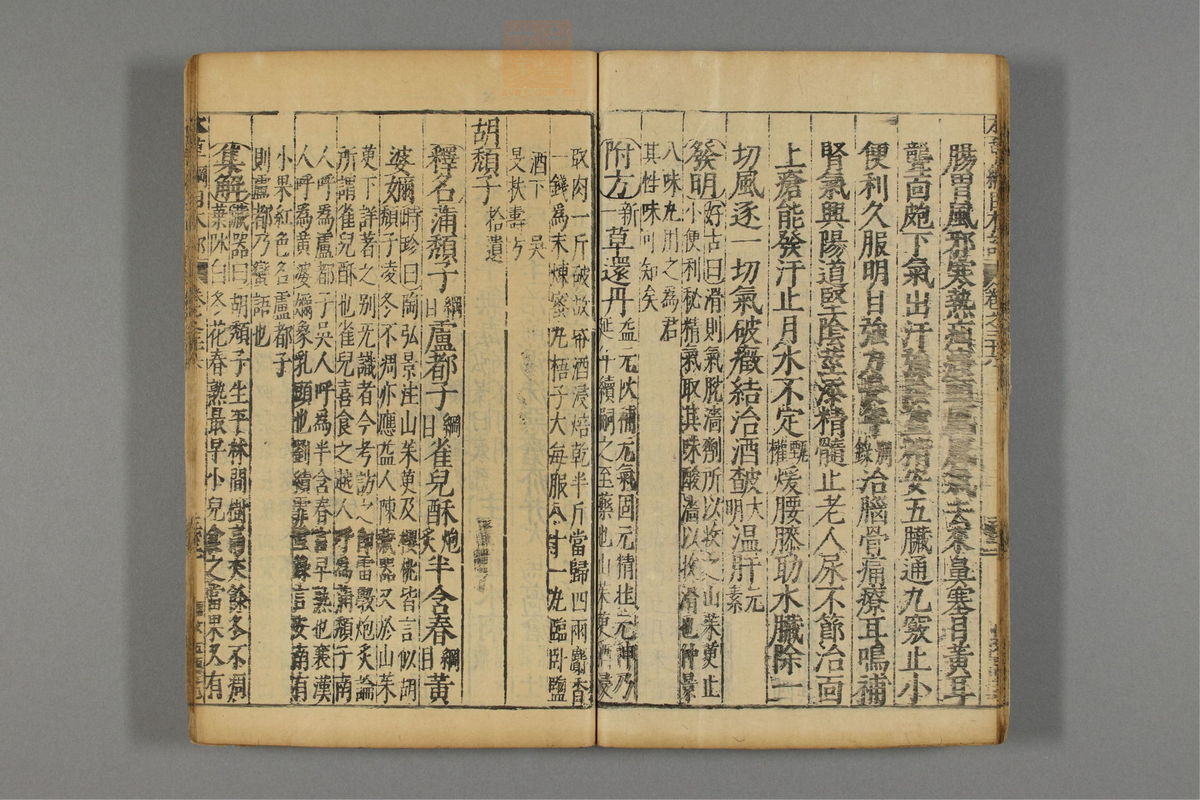 腸胃風邪寒熱疝瘕頭風風氣去來鼻塞目黃耳
聾面皰下氣出汗強陰益精安五臟通九竅止小
便利久服明目強力長年
別錄
治腦骨痛療耳鳴補
腎氣興陽道堅陰莖添精髓止老人尿不節治面
上瘡能發汗止月水不定
甄權
煖腰膝助水臟除一
切風逐一切氣破癥結治酒皶
大明
温肝
元素
發明
好古曰滑則氣脫濇劑所以收之山茱萸止
小便利秘精氣取其味酸濇以收滑也仲景
八味丸用之爲君
其性味可知矣
附方
新一
草還丹
益元陽補元氣固元精壯元神乃
延年續嗣之至藥也山茱萸酒浸
取肉一斤破故紙酒浸焙乾半斤當歸四兩麝香
一錢爲末煉蜜丸梧子大每服八十一丸臨卧鹽
酒下 吳
旻扶壽方
胡頹子
拾遺
釋名
蒲頹子
綱目
盧都子
綱目
雀兒酥
炮炙
半含春
綱目
黃
婆嬭
時珍曰陶弘景注山茱萸及櫻桃皆言似胡
頹子凌冬不凋亦應益人陳藏器又於山茱
萸下詳著之别无識者今考訪之即雷斆炮炙論
所謂雀兒酥也雀兒喜食之越人呼爲蒲頹子南
人呼爲盧都子吳人呼爲半含春言早熟也襄漢
人呼爲黃婆嬭象乳頭也劉績霏雪錄言安南有
小果紅色名盧都子
則盧都乃蠻語也
集解
藏器曰胡頹子生平林間樹高丈餘冬不凋
葉陰白冬花春熟最早小兒食之當果又有